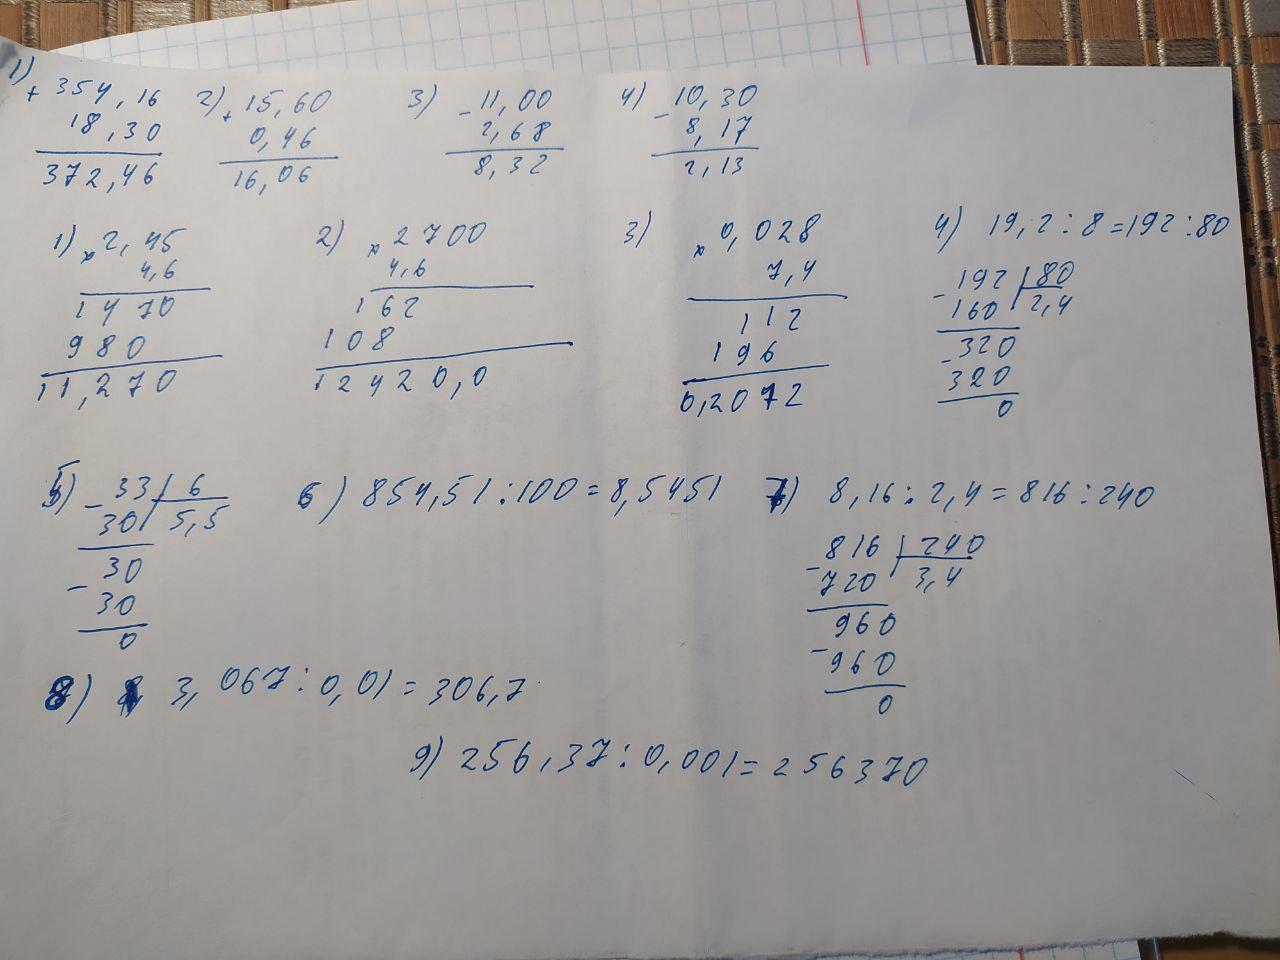 1) + 354,16 2) + 15,60 3) - 11,00 4) - 10,30
18,30 0,46 2,68 8,17
372,46 16,06 8,32 2,13
1) x 2,45 2) x 2700 3) x 0,028 4) 19,2 : 8 = 192 : 80
4,6 4,6 7,4 - 192 | 80
1470 162 112 160 2,4
980 108 196 - 320
11,270 12420,0 0,2072 320
0
5) - 33 | 6 6) 854,51 : 100 = 8,5451 7) 8,16 : 2,4 = 816 : 240
30 5,5 - 816 | 240
- 30 720 3,4
30 - 960
0 960
0
8) 3,067 : 0,01 = 306,7
9) 256,37 : 0,001 = 256370